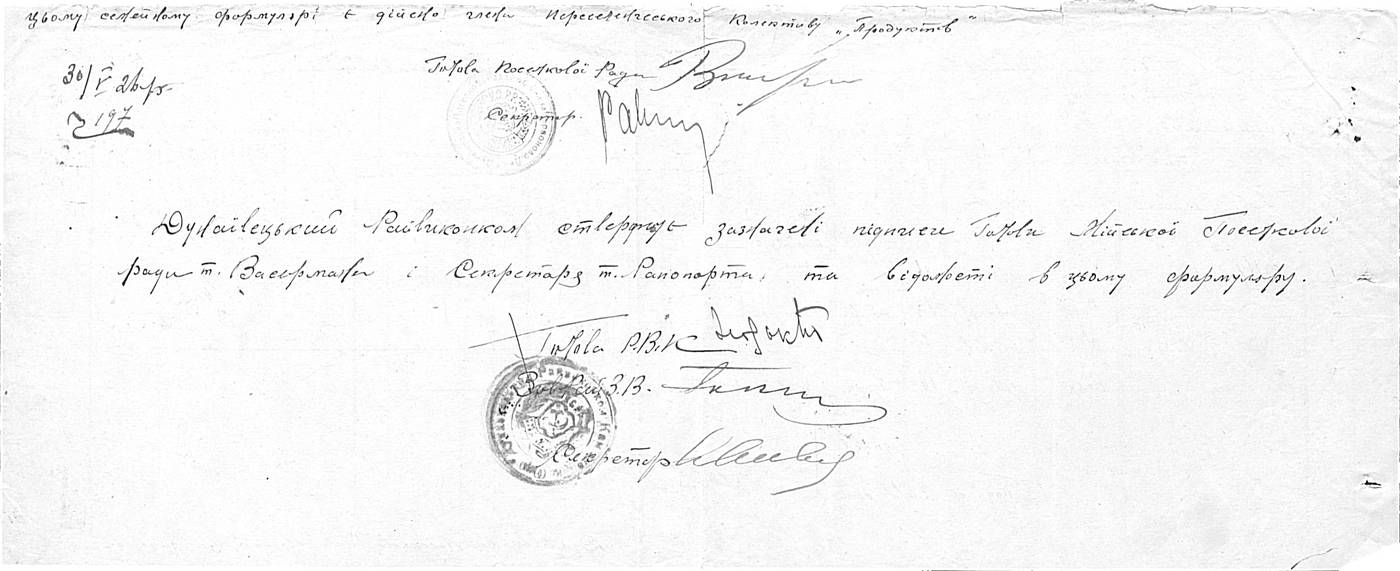 цьому сімейному формулярі є дійсно члени Переселенчеського Колективу „Продуктів"
Голова Поселкової Ради
30/V 26 р.
197
Секретар.
Дунаівецький Райвиконком стверджує зазначені підписи Голови Міської Поселкової
ради т. Васермана і Секретаря т. Рапопорта, та відомості в цьому формуляру.
Голова Р.В.К
Зав Рай З.В.
Секретар